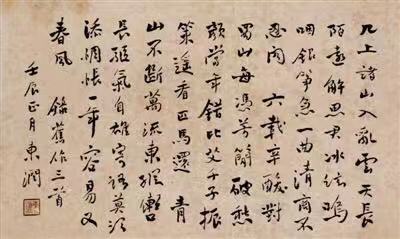 几上諸山入亂雲天長
陌遠解思君冰絃嗚
咽銀箏急一曲清商不
忍聞 六載辛酸對
蜀山每憑芳簡破愁
顏當年錯比千子振
策遥看匹馬還 青
山不斷萬流東縱轡
長驅氣自雄寄語莫須
添惆悵一年容易又
春風 錄舊作三首
壬辰正月東潤